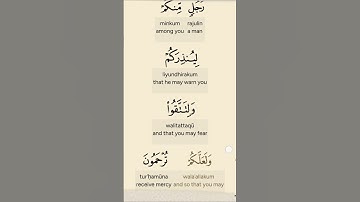 رَجُلٍ مِّنكُمْ
minkum rajulin
among you a man
لِيُنذِرَكُمْ
liyundhirakum
that he may warn you
وَلِتَتَّقُوا۟
walitattaqū
and that you may fear
وَلَعَلَّكُمْ تُرْحَمُونَ
tur'ḥamūna walaʿallakum
receive mercy and so that you may